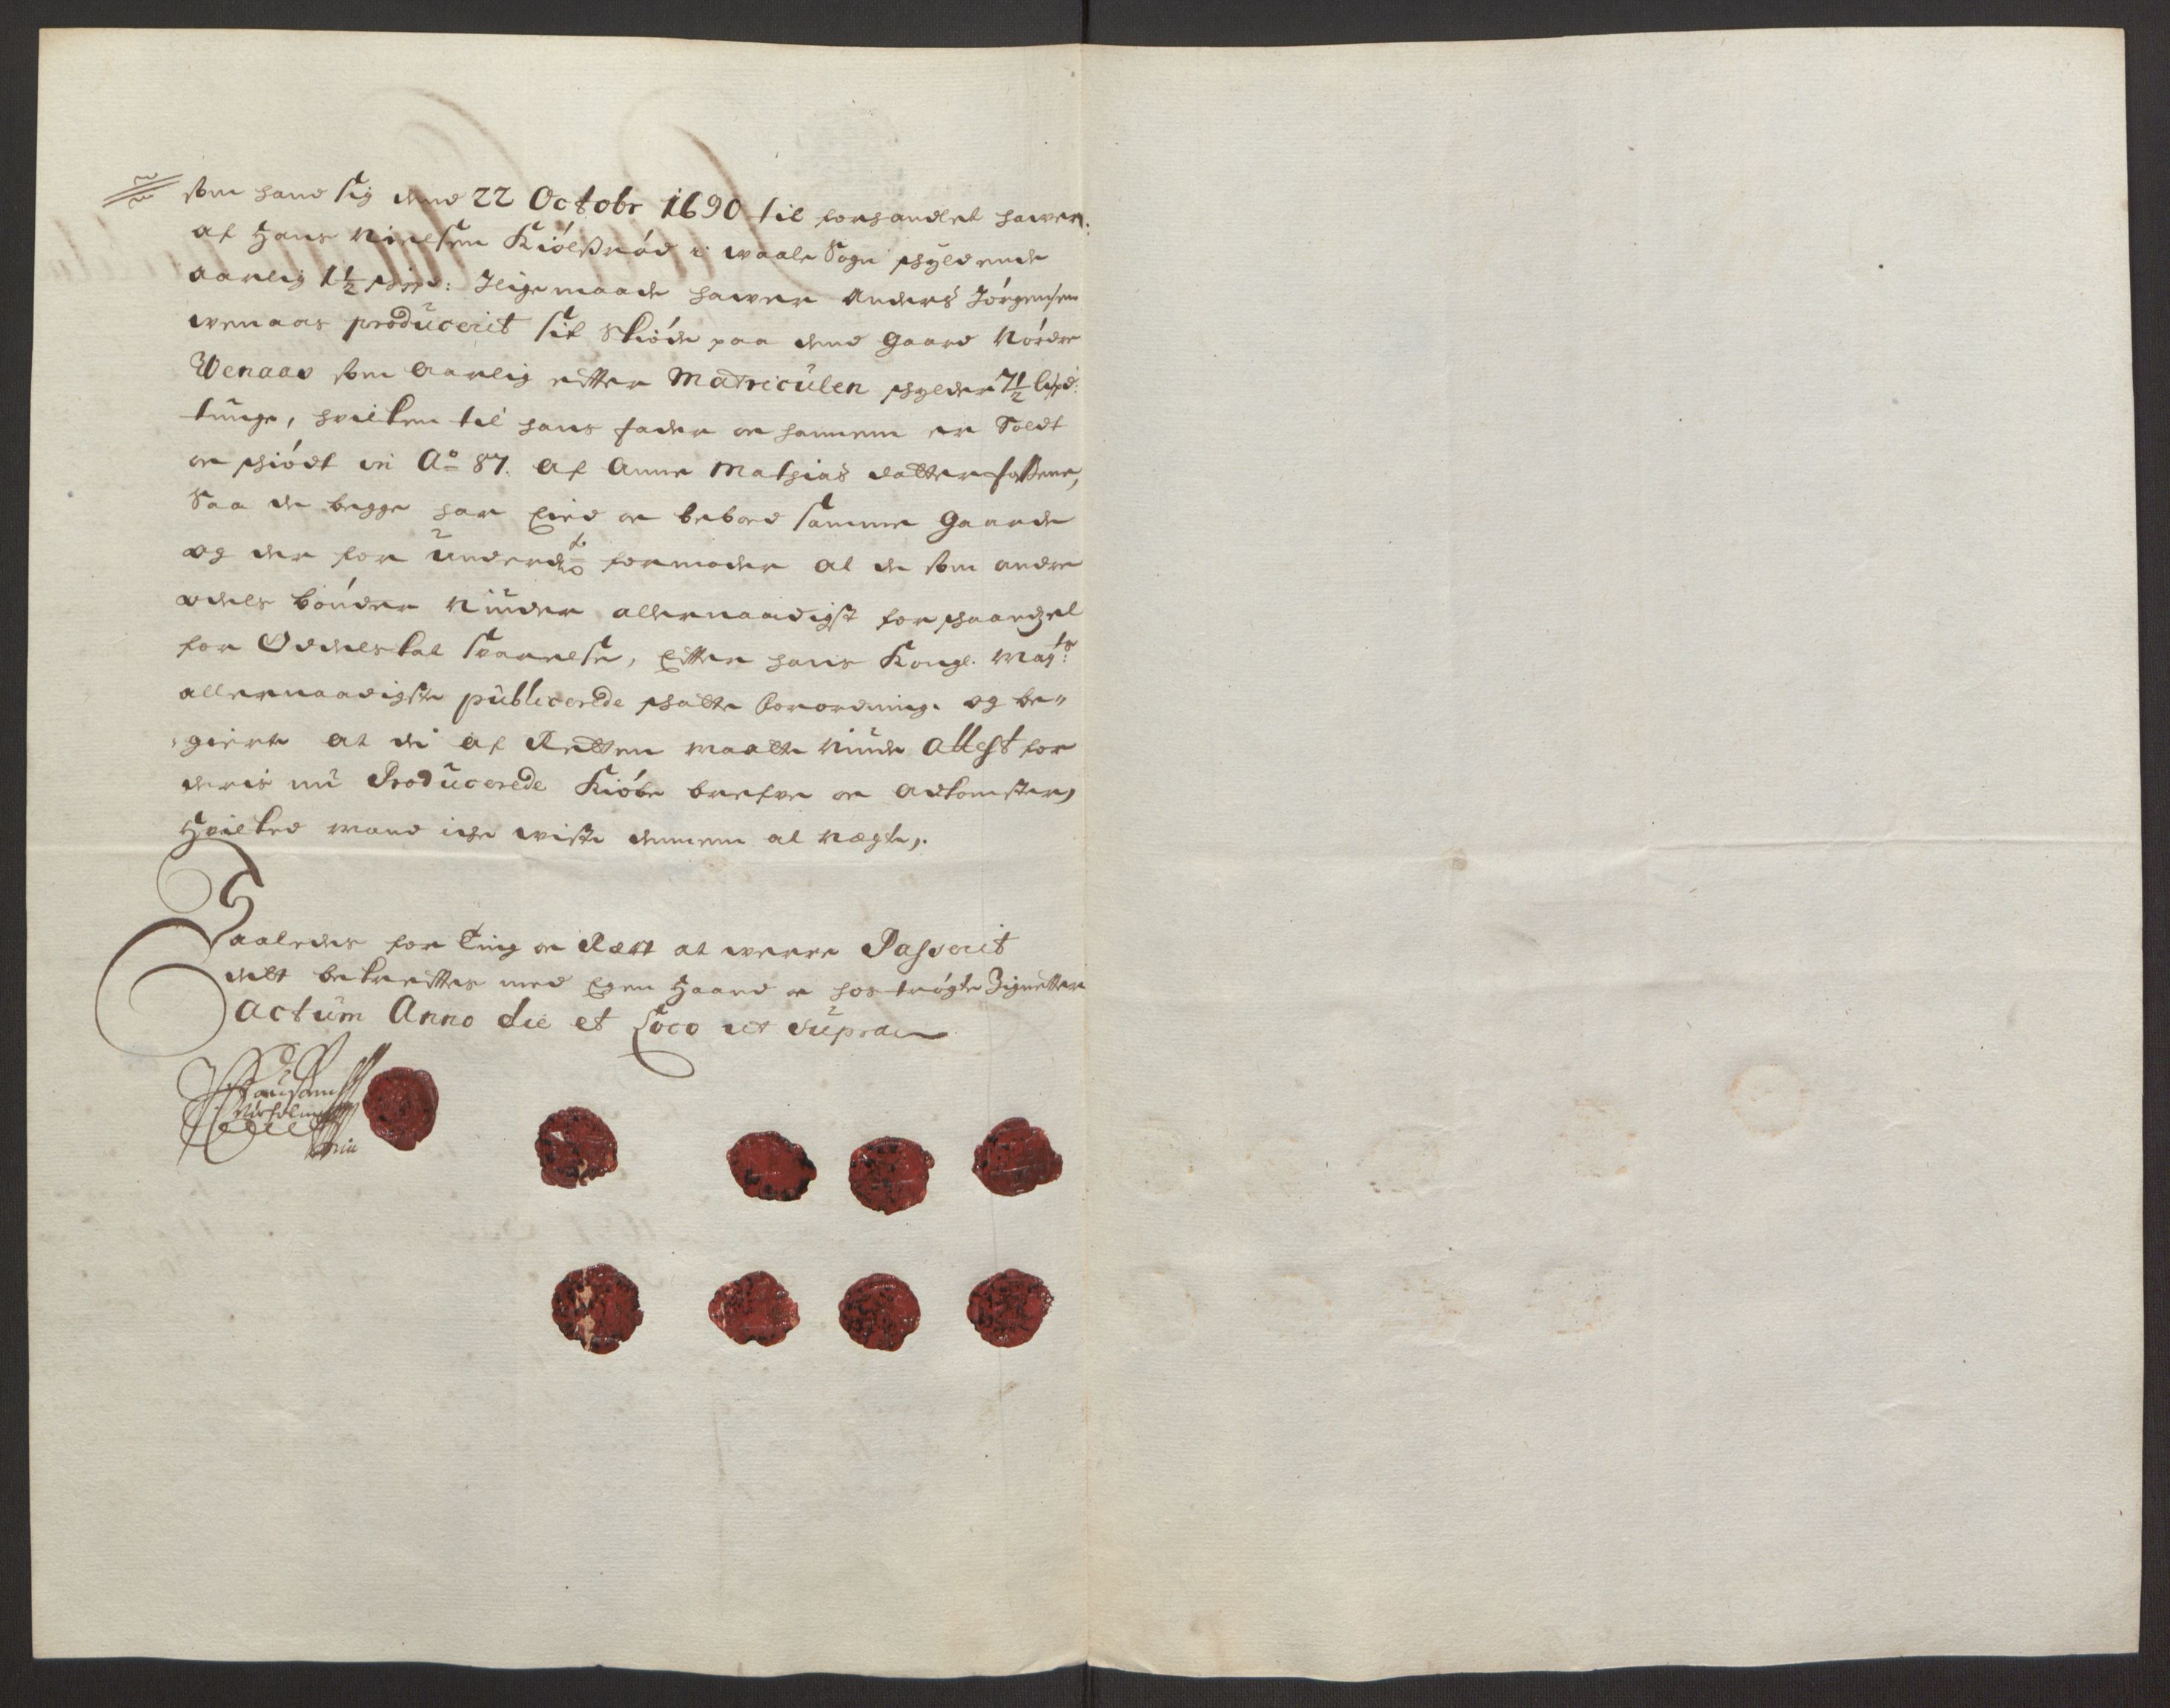 som hand sig dend 22 Octobr 1690 til forhandlet hawer
af Hans Nielsen Kiölsröd i waale Sogn schyldende
aarlig 1½ schpd: Jligemaade hawer Anders Jörgensen
wenaas producerit sit Skiöde paa dend gaard Nördre
Wenaas som aarlig efter Matriculen schylder 7½ lispd:
tunge, hvilken til hans fader oc hannem er Soldt
oc schiödt in Aº 87. af Anne Mathias datter
Saa de begge har Eied oc beboed samme gaarde
og der for underdº formoder at de som andre
odels bönder Niuder allernaadigst forschaanzel
for Oddelskat svarelse, Efter hans Kongl. Mayts:
allernaadigste publicerede schatte forordning. og be„
gierte at de af Retten maatte Niude attest for
deris nu Producerede Kiöbe brefve oc adkomster,
Hvilked mand iche wiste dennem at Nægte,.
Saaledes for Ting oc Rætt at werre Passerit
dett bekreftes med Egen Haand oc hos trögte Zignetter
Actum Anno die et Loco ut supra